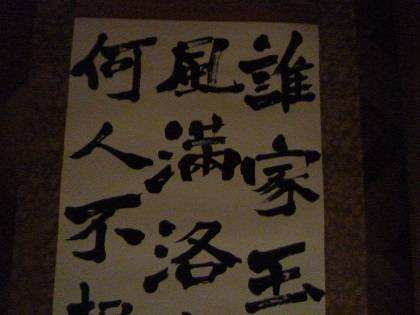 誰家玉
風滿洛
何人不